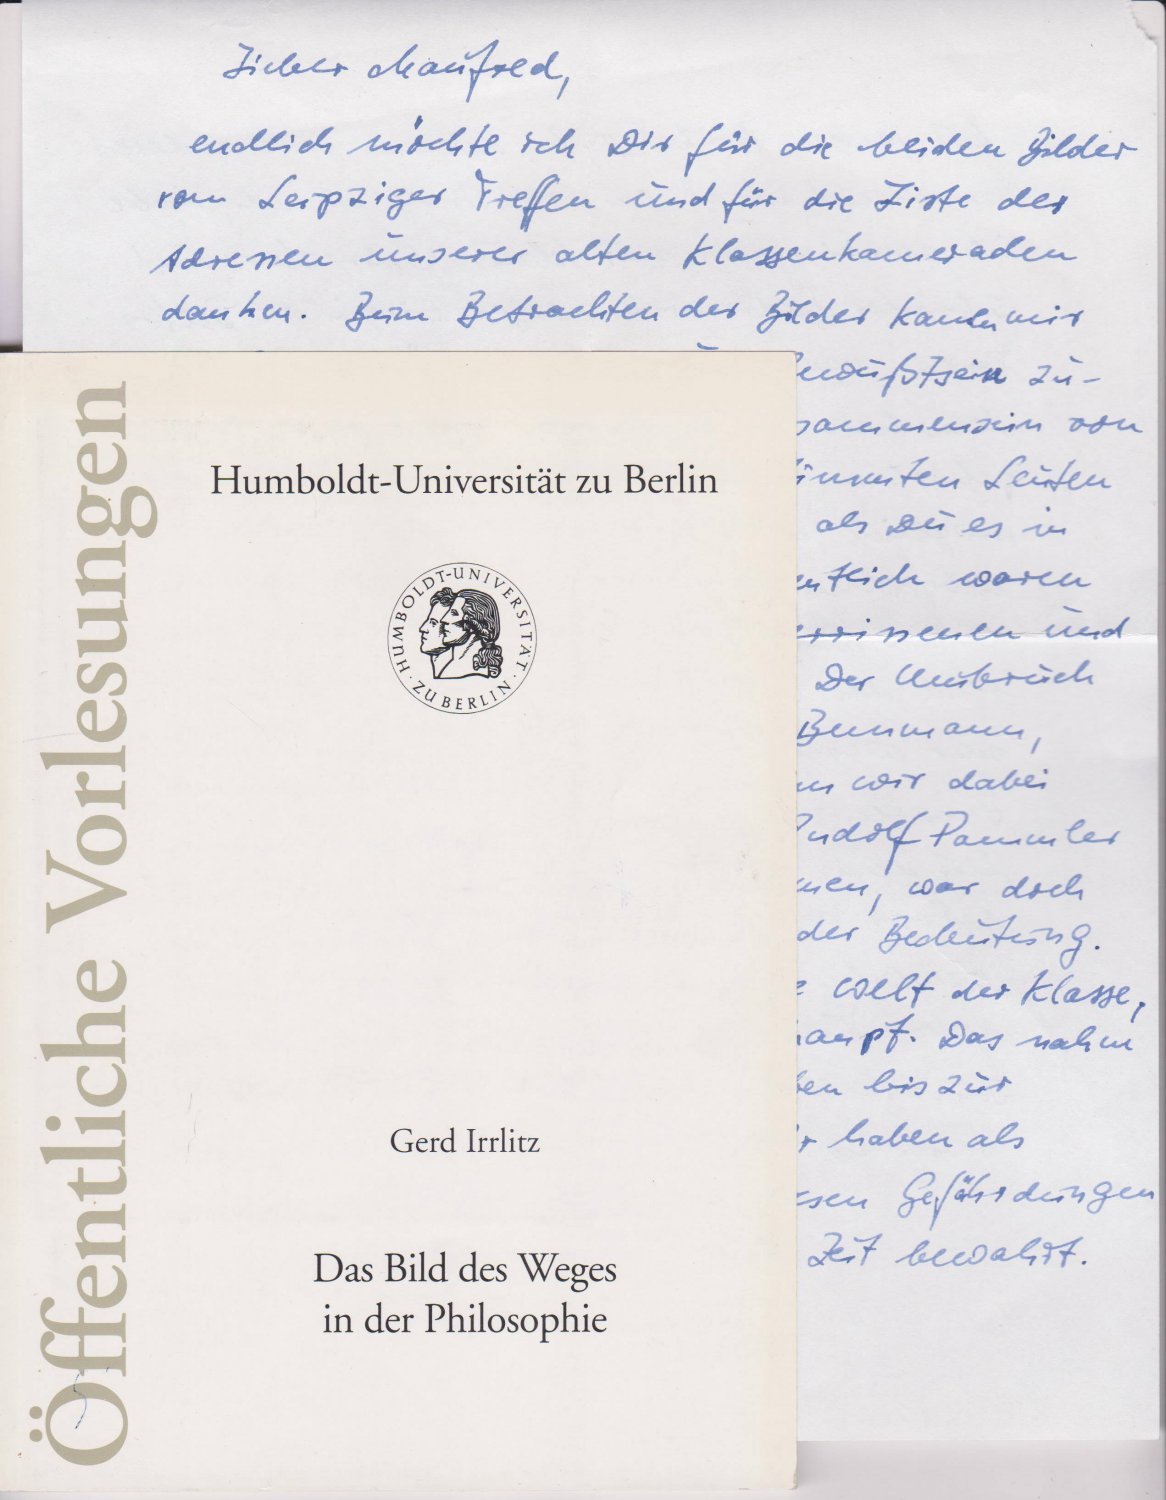 Lieber Manfred,
endlich möchte ich Dir für die beiden Bilder
vom Leipziger Treffen und für die Liste der
Adressen unserer alten Klassenkameraden
danken. Beim Betrachten der Bilder kamen mir
zu-
sammensein von
Leuten
als Du es in
waren
und
Der Ausbruch
wir dabei
Rudolf Pammler
war doch
der Bedeutung.
Welt der Klasse,
Das nahm
bis zur
haben als
Gefährdungen
Zeit bewahrt.
Öffentliche Vorlesungen
Humboldt-Universität zu Berlin
HUMBOLDT-UNIVERSITÄT · ZU BERLIN ·
Gerd Irrlitz
Das Bild des Weges
in der Philosophie